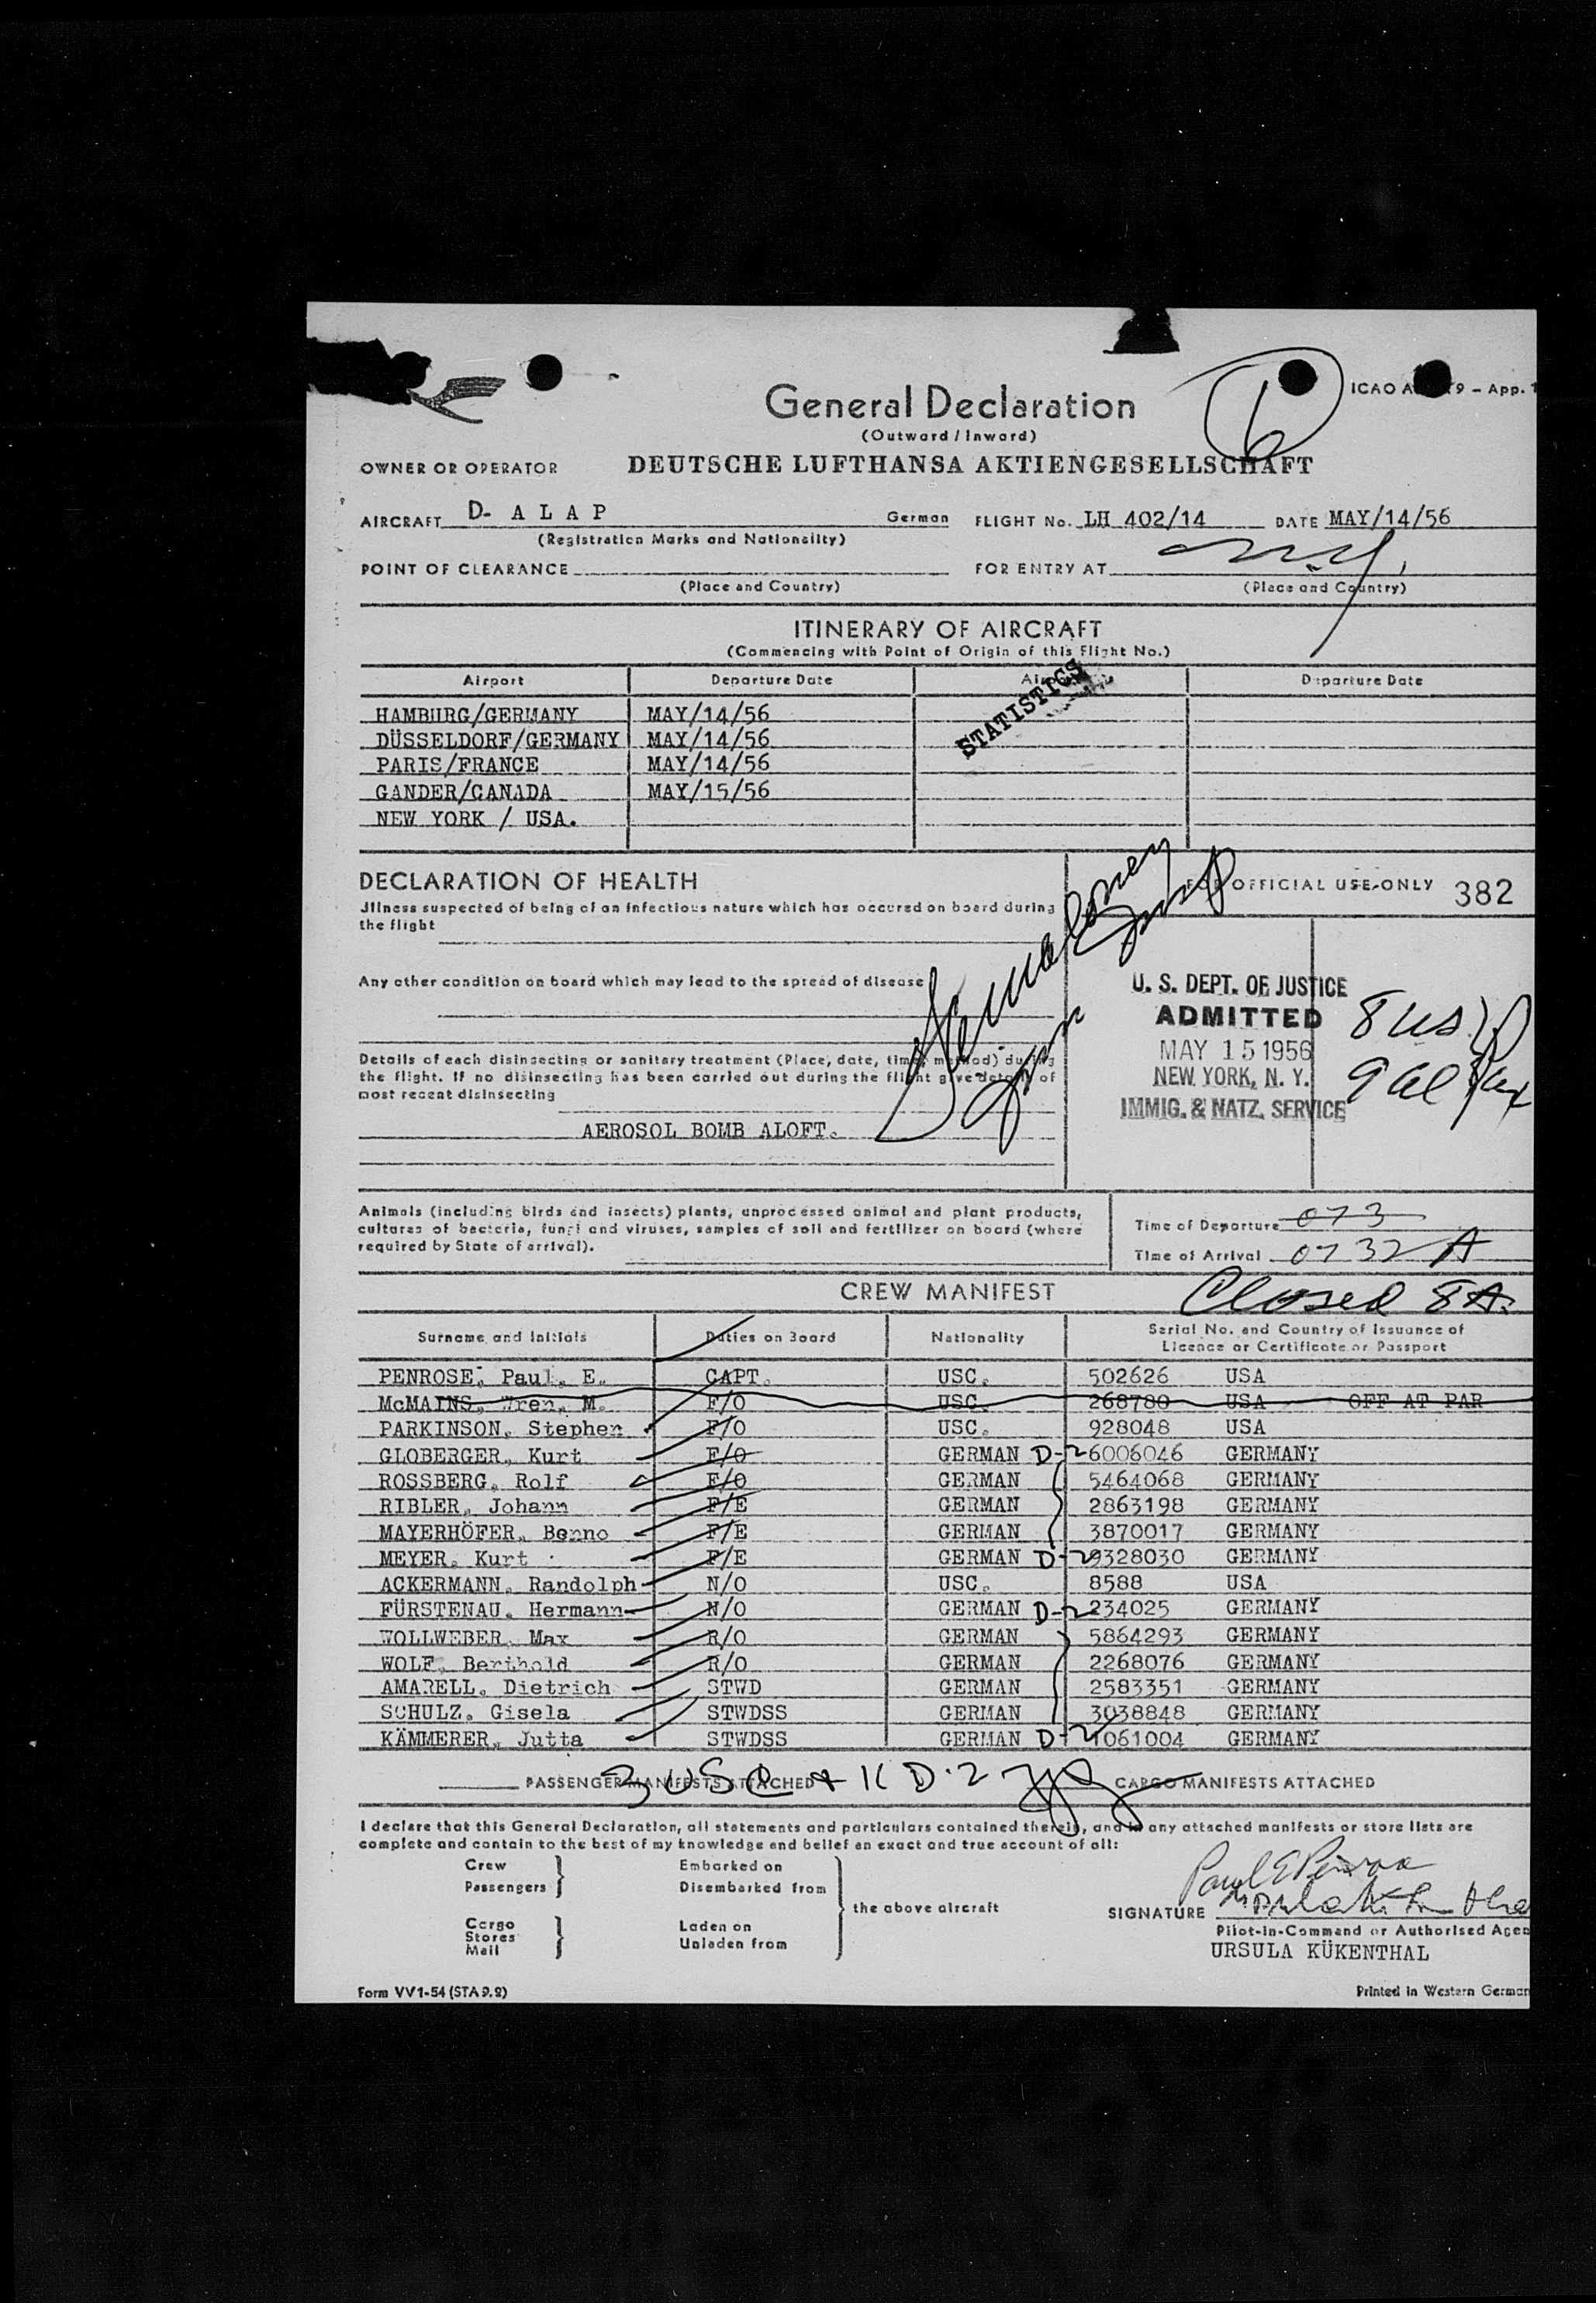 General Declaration
(Outward / Inward)
ICAO A 9 – App. 1
OWNER OR OPERATOR DEUTSCHE LUFTHANSA AKTIENGESELLSCHAFT
AIRCRAFT D- A L A P German FLIGHT No. LH 402/14 DATE MAY/14/56
(Registration Marks and Nationality)
POINT OF CLEARANCE FOR ENTRY AT N.Y.
(Place and Country) (Place and Country)
ITINERARY OF AIRCRAFT
(Commencing with Point of Origin of this Flight No.)
Airport Departure Date Departure Date
STATISTICS
HAMBURG/GERMANY MAY/14/56
DÜSSELDORF/GERMANY MAY/14/56
PARIS/FRANCE MAY/14/56
GANDER/CANADA MAY/15/56
NEW YORK / USA.
DECLARATION OF HEALTH FOR OFFICIAL USE ONLY 382
Illness suspected of being of an infectious nature which has occured on board during
the flight
Any other condition on board which may lead to the spread of disease
Details of each disinsecting or sanitary treatment (Place, date, time, method) during
the flight. If no disinsecting has been carried out during the flight give details of
most recent disinsecting
AEROSOL BOMB ALOFT.
U. S. DEPT. OF JUSTICE
ADMITTED
MAY 15 1956
NEW YORK, N. Y.
IMMIG. & NATZ. SERVICE
8 us
9 al
Animals (including birds and insects) plants, unprocessed animal and plant products,
cultures of bacteria, fungi and viruses, samples of soil and fertilizer on board (where
required by State of arrival).
Time of Departure 073
Time of Arrival 0732 A
CREW MANIFEST Closed 8A.
Surname and Initials Duties on Board Nationality Serial No. and Country of Issuance of
Licence or Certificate or Passport
PENROSE, Paul, E. CAPT. USC. 502626 USA
McMAINS, Wren, M. F/O USC. 268780 USA OFF AT PAR
PARKINSON, Stephen F/O USC. 928048 USA
GLOBERGER, Kurt F/O GERMAN D-2 6006046 GERMANY
ROSSBERG, Rolf F/O GERMAN 5464068 GERMANY
RIBLER, Johann F/E GERMAN 2863198 GERMANY
MAYERHÖFER, Benno F/E GERMAN 3870017 GERMANY
MEYER, Kurt F/E GERMAN D-2 9328030 GERMANY
ACKERMANN, Randolph N/O USC. 8588 USA
FÜRSTENAU, Hermann N/O GERMAN D-2 234025 GERMANY
WOLLWEBER, Max R/O GERMAN 5864293 GERMANY
WOLF, Berthold R/O GERMAN 2268076 GERMANY
AMARELL, Dietrich STWD GERMAN 2583351 GERMANY
SCHULZ, Gisela STWDSS GERMAN 3038848 GERMANY
KÄMMERER, Jutta STWDSS GERMAN D-2 1061004 GERMANY
PASSENGER MANIFESTS ATTACHED CARGO MANIFESTS ATTACHED
3 USC + 11 D-2
I declare that this General Declaration, all statements and particulars contained therein, and in any attached manifests or store lists are
complete and contain to the best of my knowledge and belief an exact and true account of all:
Crew Embarked on
Passengers Disembarked from
the above aircraft
Cargo Laden on
Stores
Mail Unladen from
Paul E Penrose
SIGNATURE
Pilot-in-Command or Authorised Agen
URSULA KÜKENTHAL
Form VV1-54 (STA 9.2) Printed in Western German